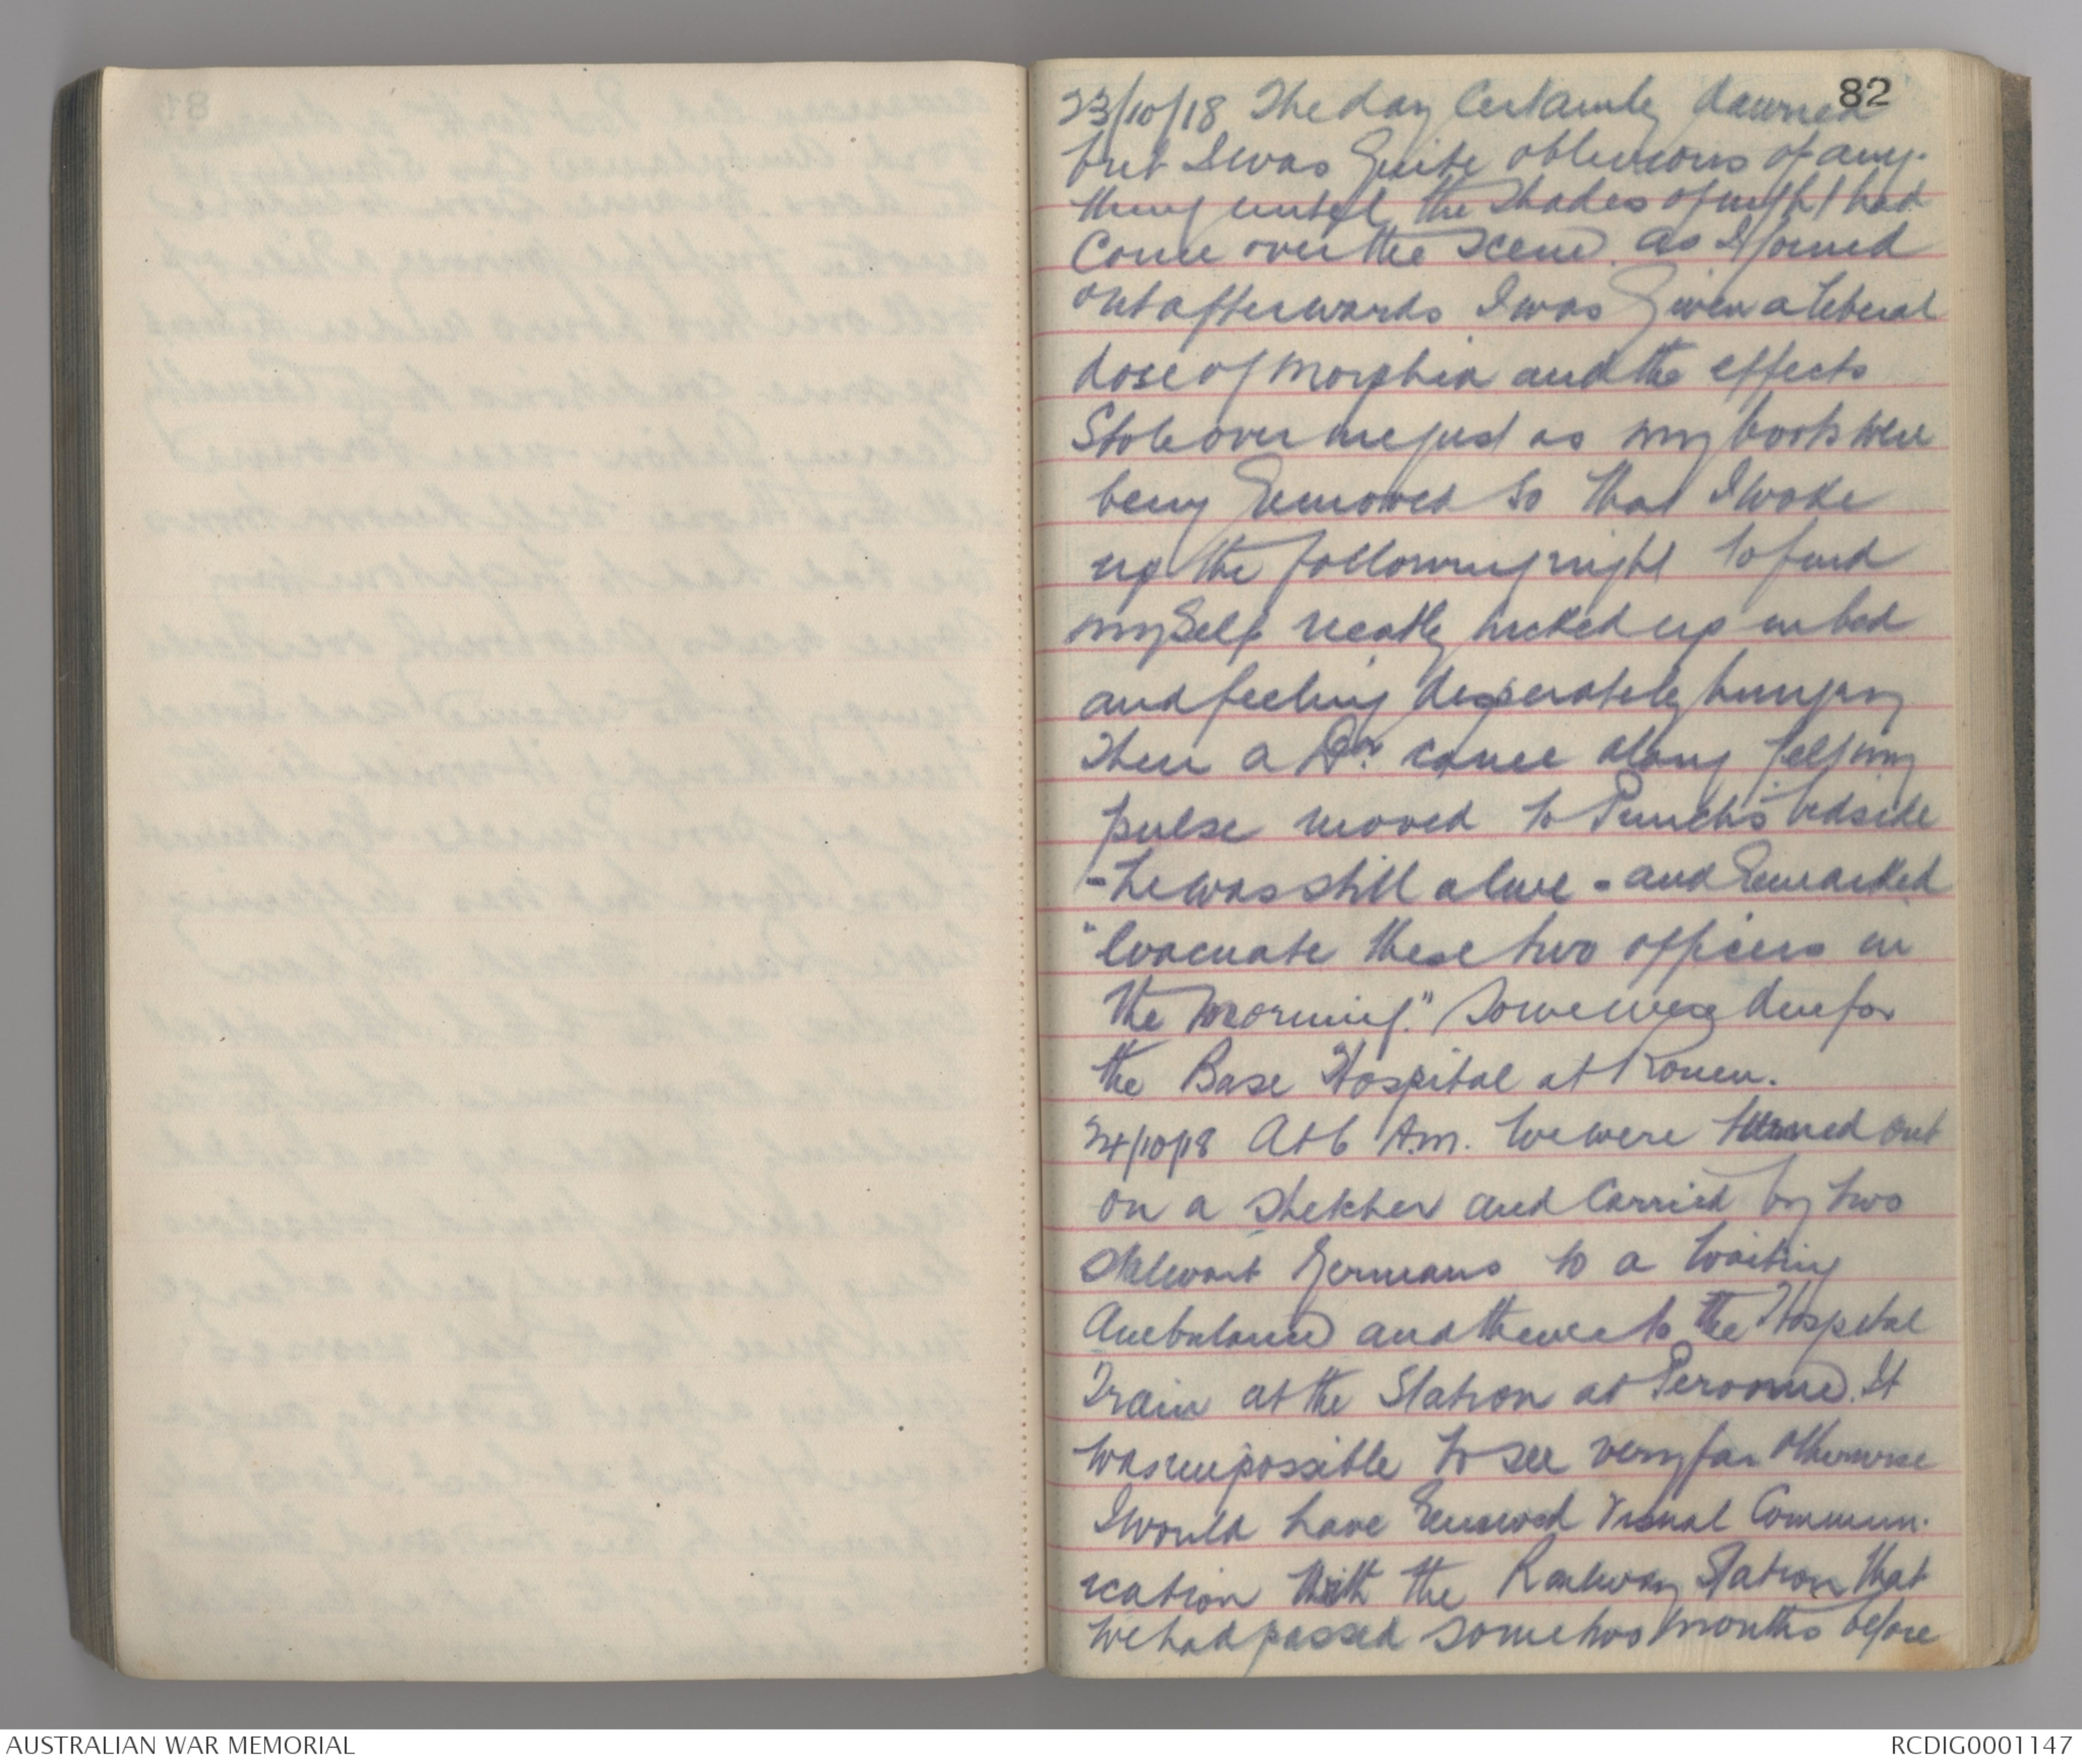 82
23/10/18 The day Certainly dawned
but I was Quite oblivious of any-
thing until the Shades of night had
Come over the Scene. as I found
out afterwards I was Given a liberal
dose of Morphia and the effects
Stole over me just as my boots were
being Removed So that I woke
up the following night to find
myself neatly tucked up in bed
and feeling desperately hungry
Then a Dr. came along felt my
pulse moved to Punch's bedside
- he was still alive - and Remarked
"Evacuate these two officers in
the morning." So we were due for
the Base Hospital at Rouen.
24/10/18 At 6 A.M. we were turned out
on a stretcher and Carried by two
stalwart Germans to a waiting
Ambulance and thence to the Hospital
Train at the Station at Peronne. It
was impossible to see very far otherwise
I would have Renewed Visual Commun-
ication with the Railway Station that
we had passed some two months before
AUSTRALIAN WAR MEMORIAL
RCDIG0001147